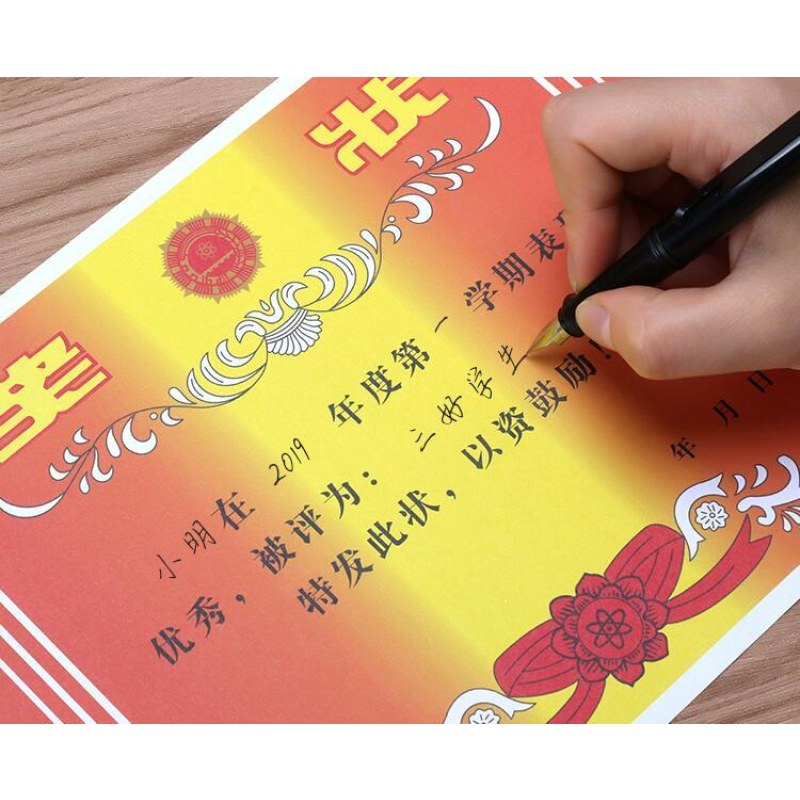 奖状
小明在 2019 年度第一学期表
优秀，被评为：三好学生
特发此状，以资鼓励！
年 月 日